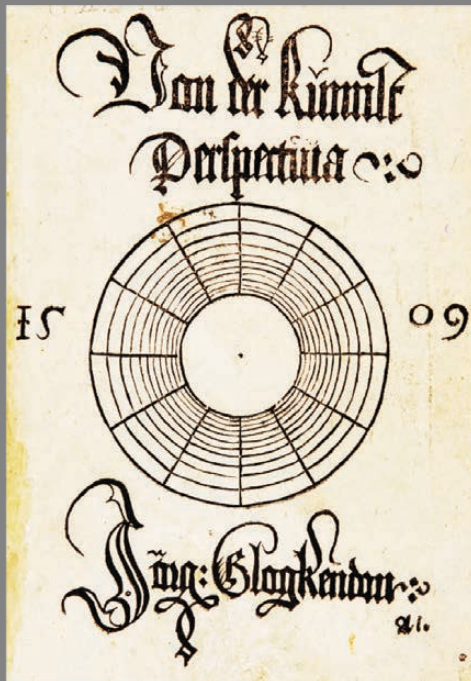 Von der kunnst
Perspectiua
15 09
Jörg: Glogkendon